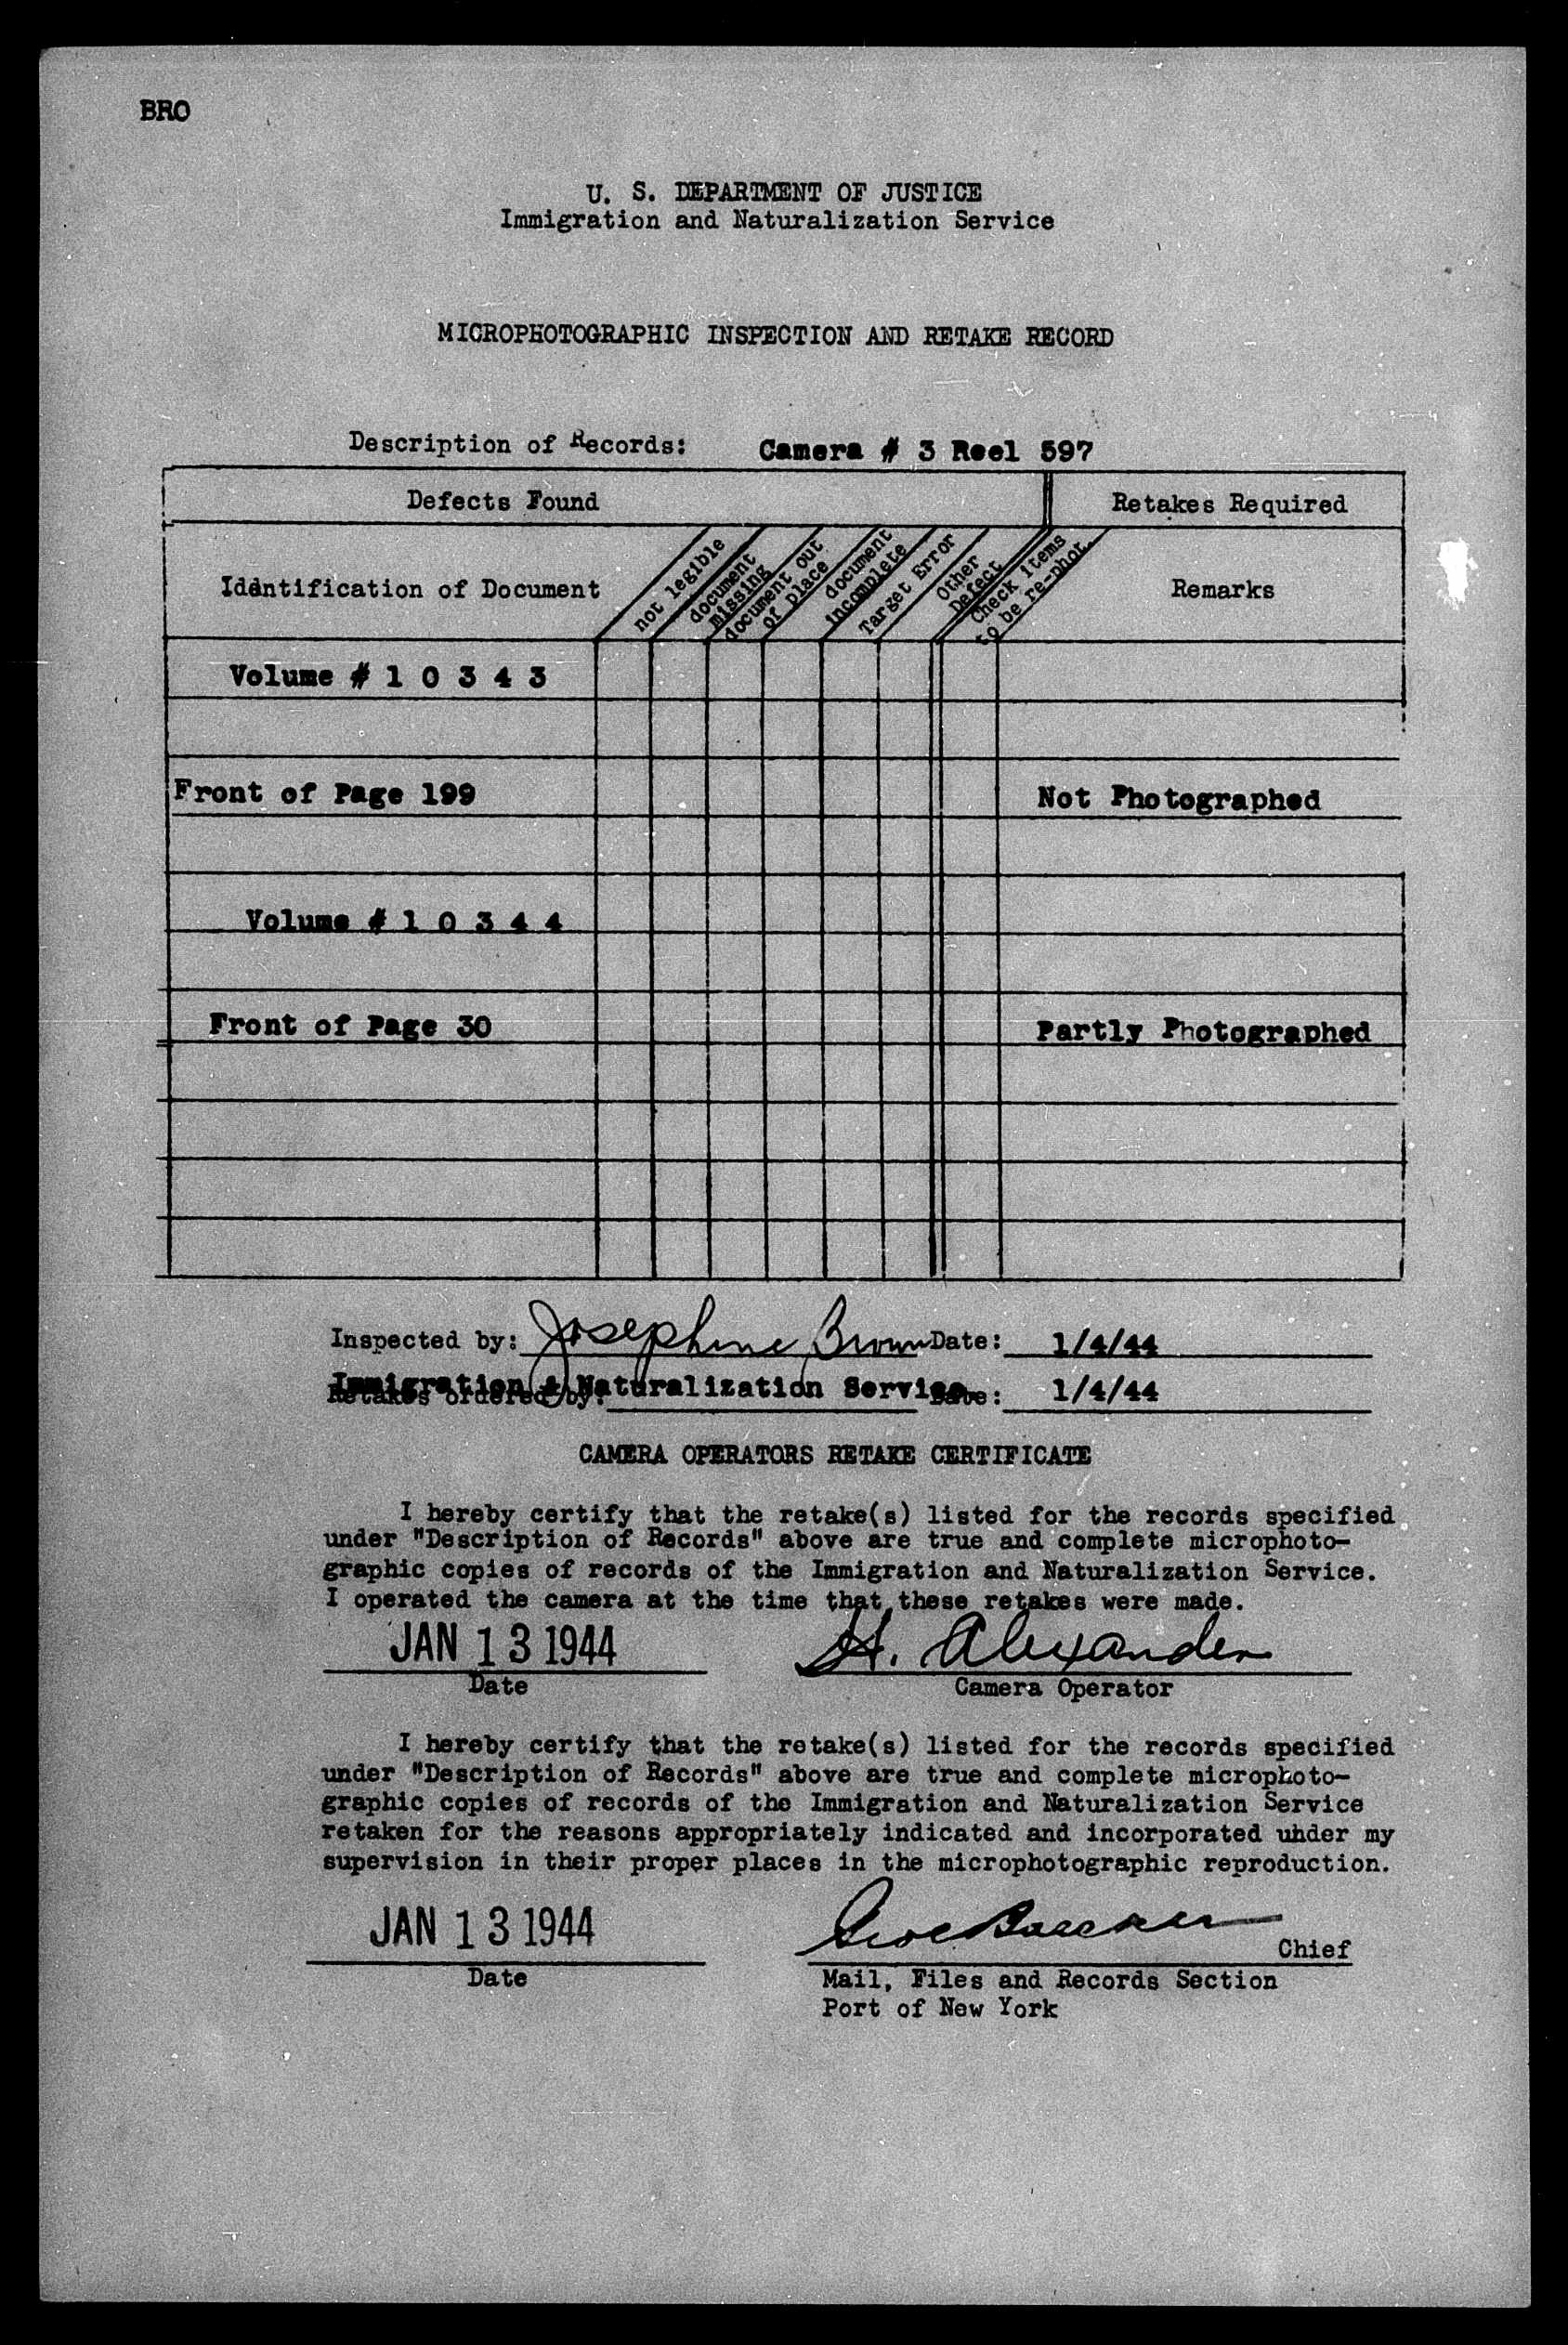 BRO
U. S. DEPARTMENT OF JUSTICE
Immigration and Naturalization Service
MICROPHOTOGRAPHIC INSPECTION AND RETAKE RECORD
Description of Records: Camera # 3 Reel 597
Defects Found Retakes Required
Idéntification of Document
not legible
document missing
document out of place
document incomplete
Target Error
Other Defect
Check items to be re-phot.
Remarks
Volume # 1 0 3 4 3
Front of Page 199 Not Photographed
Volume # 1 0 3 4 4
Front of Page 30 Partly Photographed
Inspected by: Josephine Brown Date: 1/4/44
Immigration & Naturalization Service
Retakes ordered by: Date: 1/4/44
CAMERA OPERATORS RETAKE CERTIFICATE
I hereby certify that the retake(s) listed for the records specified
under "Description of Records" above are true and complete microphoto-
graphic copies of records of the Immigration and Naturalization Service.
I operated the camera at the time that these retakes were made.
JAN 13 1944 H. Alexander
Date Camera Operator
I hereby certify that the retake(s) listed for the records specified
under "Description of Records" above are true and complete microphoto-
graphic copies of records of the Immigration and Naturalization Service
retaken for the reasons appropriately indicated and incorporated under my
supervision in their proper places in the microphotographic reproduction.
JAN 13 1944 Chief
Date Mail, Files and Records Section
Port of New York